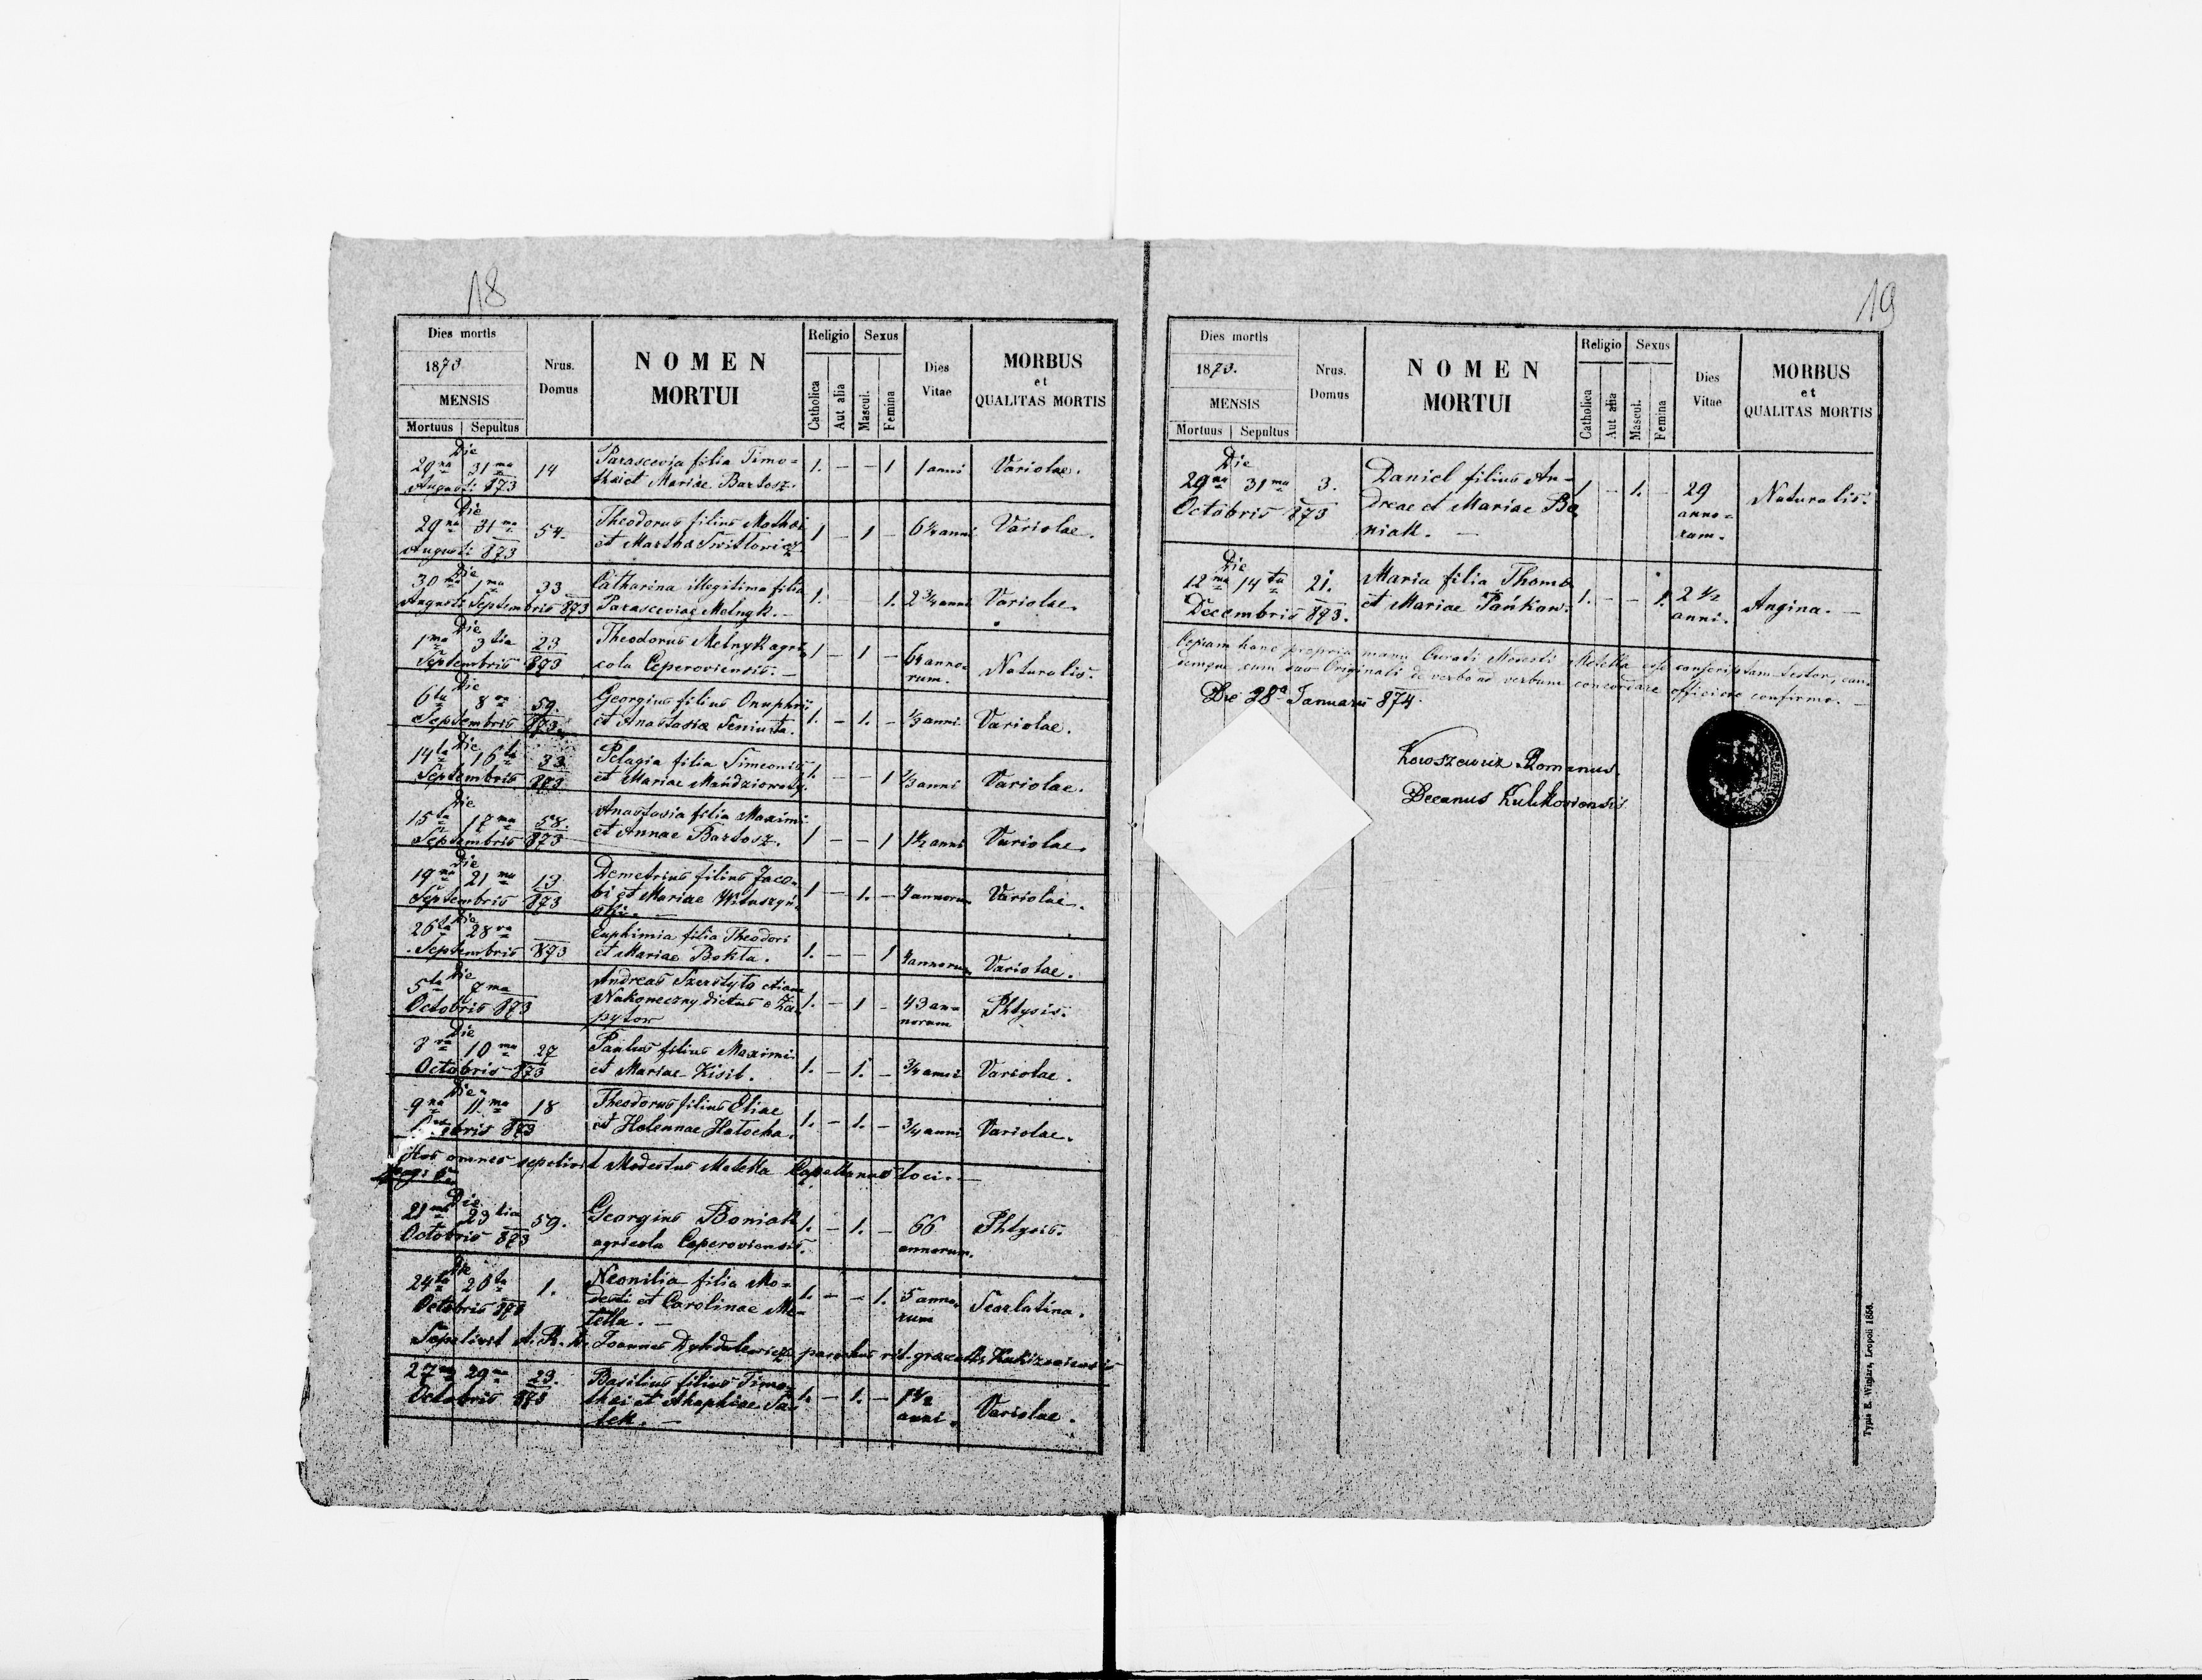 18
Dies mortis
1873
MENSIS
Mortuus | Sepultus
Nrus.
Domus
NOMEN
MORTUI
Religio
Catholica
Aut alia
Sexus
Mascul.
Femina
Dies
Vitae
MORBUS
et
QUALITAS MORTIS
Die
29na 31ma 14 Parascevia filia Timo= 1. – – 1 1 anni Variolae.
Augusti 873 thei et Mariae Bartosz.
Die
29na 31ma 54. Theodorus filius Mathei 1 – 1 – 6 1/2 anni Variolae.
Augusti 873 et Martha
Die
30ma 1ma 33 Catharina illegitima filia 1. 1. 2 3/4 anni Variolae.
Augusti Septembris 873 Parasceviae Melnyk. –
Die
1ma 3tia 23 Theodorus Melnyk agri= 1 – 1 – anno=
Septembris 873 cola Ceperoviensis. – rum. Naturalis.
Die
6ta 8va 59. Georgius filius Onuphrii
Septembris 873 et Anastasiae 1. – 1. – 1/3 anni Variolae.
Die
14ta 16ta 33 Pelagia filia Simeonis
Septembris 873 et Mariae 1. – – 1 1/3 anni Variolae.
Die
15ta 17ma 58. Anastasia filia Maximi
Septembris 873 et Annae Bartosz. 1 – – 1 1 1/2 anni Variolae.
Die
19na 21ma 13 Demetrius filius Jaco=
Septembris 873 bi et Mariae 1 – 1. – annorum Variolae.
Die
26ta 28va Euphimia filia Theodori
Septembris 873 et Mariae 1. – – 1 annorum Variolae.
Die
5ta 7ma Andreas etiam
Octobris 873 Nakoneczny dictus 1. – 1 – 43 an=
norum Phtysis.
Die
8va 10ma 27 Paulus filius Maximi
Octobris 873 et Mariae Kisil. 1. – 1. – 3/4 anni Variolae.
Die
9na 11ma 18 Theodorus filius Eliae
873 et Helennae Hatocha. 1. – 1. – 3/4 anni Variolae.
Hos omnes sepelivit Modestus Metella Capellanus loci. –
Die
21ma 23tia 59. Georgius Boniak 1. – 1. – 66 Phtysis.
Octobris 873 agricola Ceperoviensis. annorum.
Die
24ta 26ta 1. Neonilia filia Mo= 1. – – 1. 5 anno=
Octobris 873 desti et Carolinae Me= rum Scarlatina.
tella. –
Sepelivit A. R. D. Joannes parochus rit. graeci
27ma 29na 23. Basilius filius Timo= 1. – 1. – 1 1/2
Octobris 873 thei et anni. Variolae.
19
Dies mortis
1873.
MENSIS
Mortuus | Sepultus
Nrus.
Domus
NOMEN
MORTUI
Religio
Catholica
Aut alia
Sexus
Mascul.
Femina
Dies
Vitae
MORBUS
et
QUALITAS MORTIS
Die
29na 31ma 3. Daniel filius An= 1 – 1. – 29 Naturalis.
Octobris 873 dreae et Mariae Bo= anno=
niak. – rum.
Die
12ma 14ta 21. Maria filia Thomae 1. – – 1. 2 1/2
Decembris 873. et Mariae Pańkow. anni. Angina. –
Copiam hanc propria manu Curati Modesti Metella esse conscriptam testor, ean=
demque cum suo Originali de verbo ad verbum concordare officiose confirmo. –
Die 28a Januarii 874.
Romanus.
Decanus Kulikoviensis
Typis E. Winiarz, Leopoli 1856.